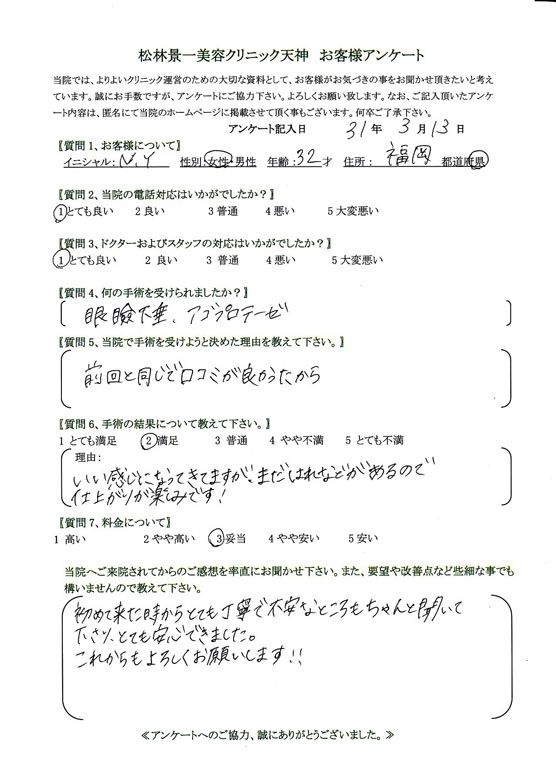 松林景一美容クリニック天神　お客様アンケート
当院では、よりよいクリニック運営のための大切な資料として、お客様がお気づきの事をお聞かせ頂きたいと考え
ています。誠にお手数ですが、アンケートにご協力下さい。よろしくお願い致します。なお、ご記入頂いたアンケ
ート内容は、匿名にて当院のホームページに掲載させて頂く事もございます。何卒ご了承下さい。
アンケート記入日　31 年 3 月 13 日
〖質問 1、お客様について〗
イニシャル：N.Y　性別：女性・男性　年齢：32 才　住所：福岡 都道府県
〖質問 2、当院の電話対応はいかがでしたか？〗
1 とても良い　2 良い　3 普通　4 悪い　5 大変悪い
〖質問 3、ドクターおよびスタッフの対応はいかがでしたか？〗
1 とても良い　2 良い　3 普通　4 悪い　5 大変悪い
〖質問 4、何の手術を受けられましたか？〗
眼瞼下垂、アゴプロテーゼ
〖質問 5、当院で手術を受けようと決めた理由を教えて下さい。〗
前回と同じで口コミが良かったから
〖質問 6、手術の結果について教えて下さい。〗
1 とても満足　2 満足　3 普通　4 やや不満　5 とても不満
理由：
いい感じになってきてますが、まだはれなどがあるので
仕上がりが楽しみです！
〖質問 7、料金について〗
1 高い　2 やや高い　3 妥当　4 やや安い　5 安い
当院へご来院されてからのご感想を率直にお聞かせ下さい。また、要望や改善点など些細な事でも
構いませんので教えて下さい。
初めて来た時からとても丁寧で不安なところもちゃんと聞いて
下さり、とても安心できました。
これからもよろしくお願いします！！
≪アンケートへのご協力、誠にありがとうございました。≫